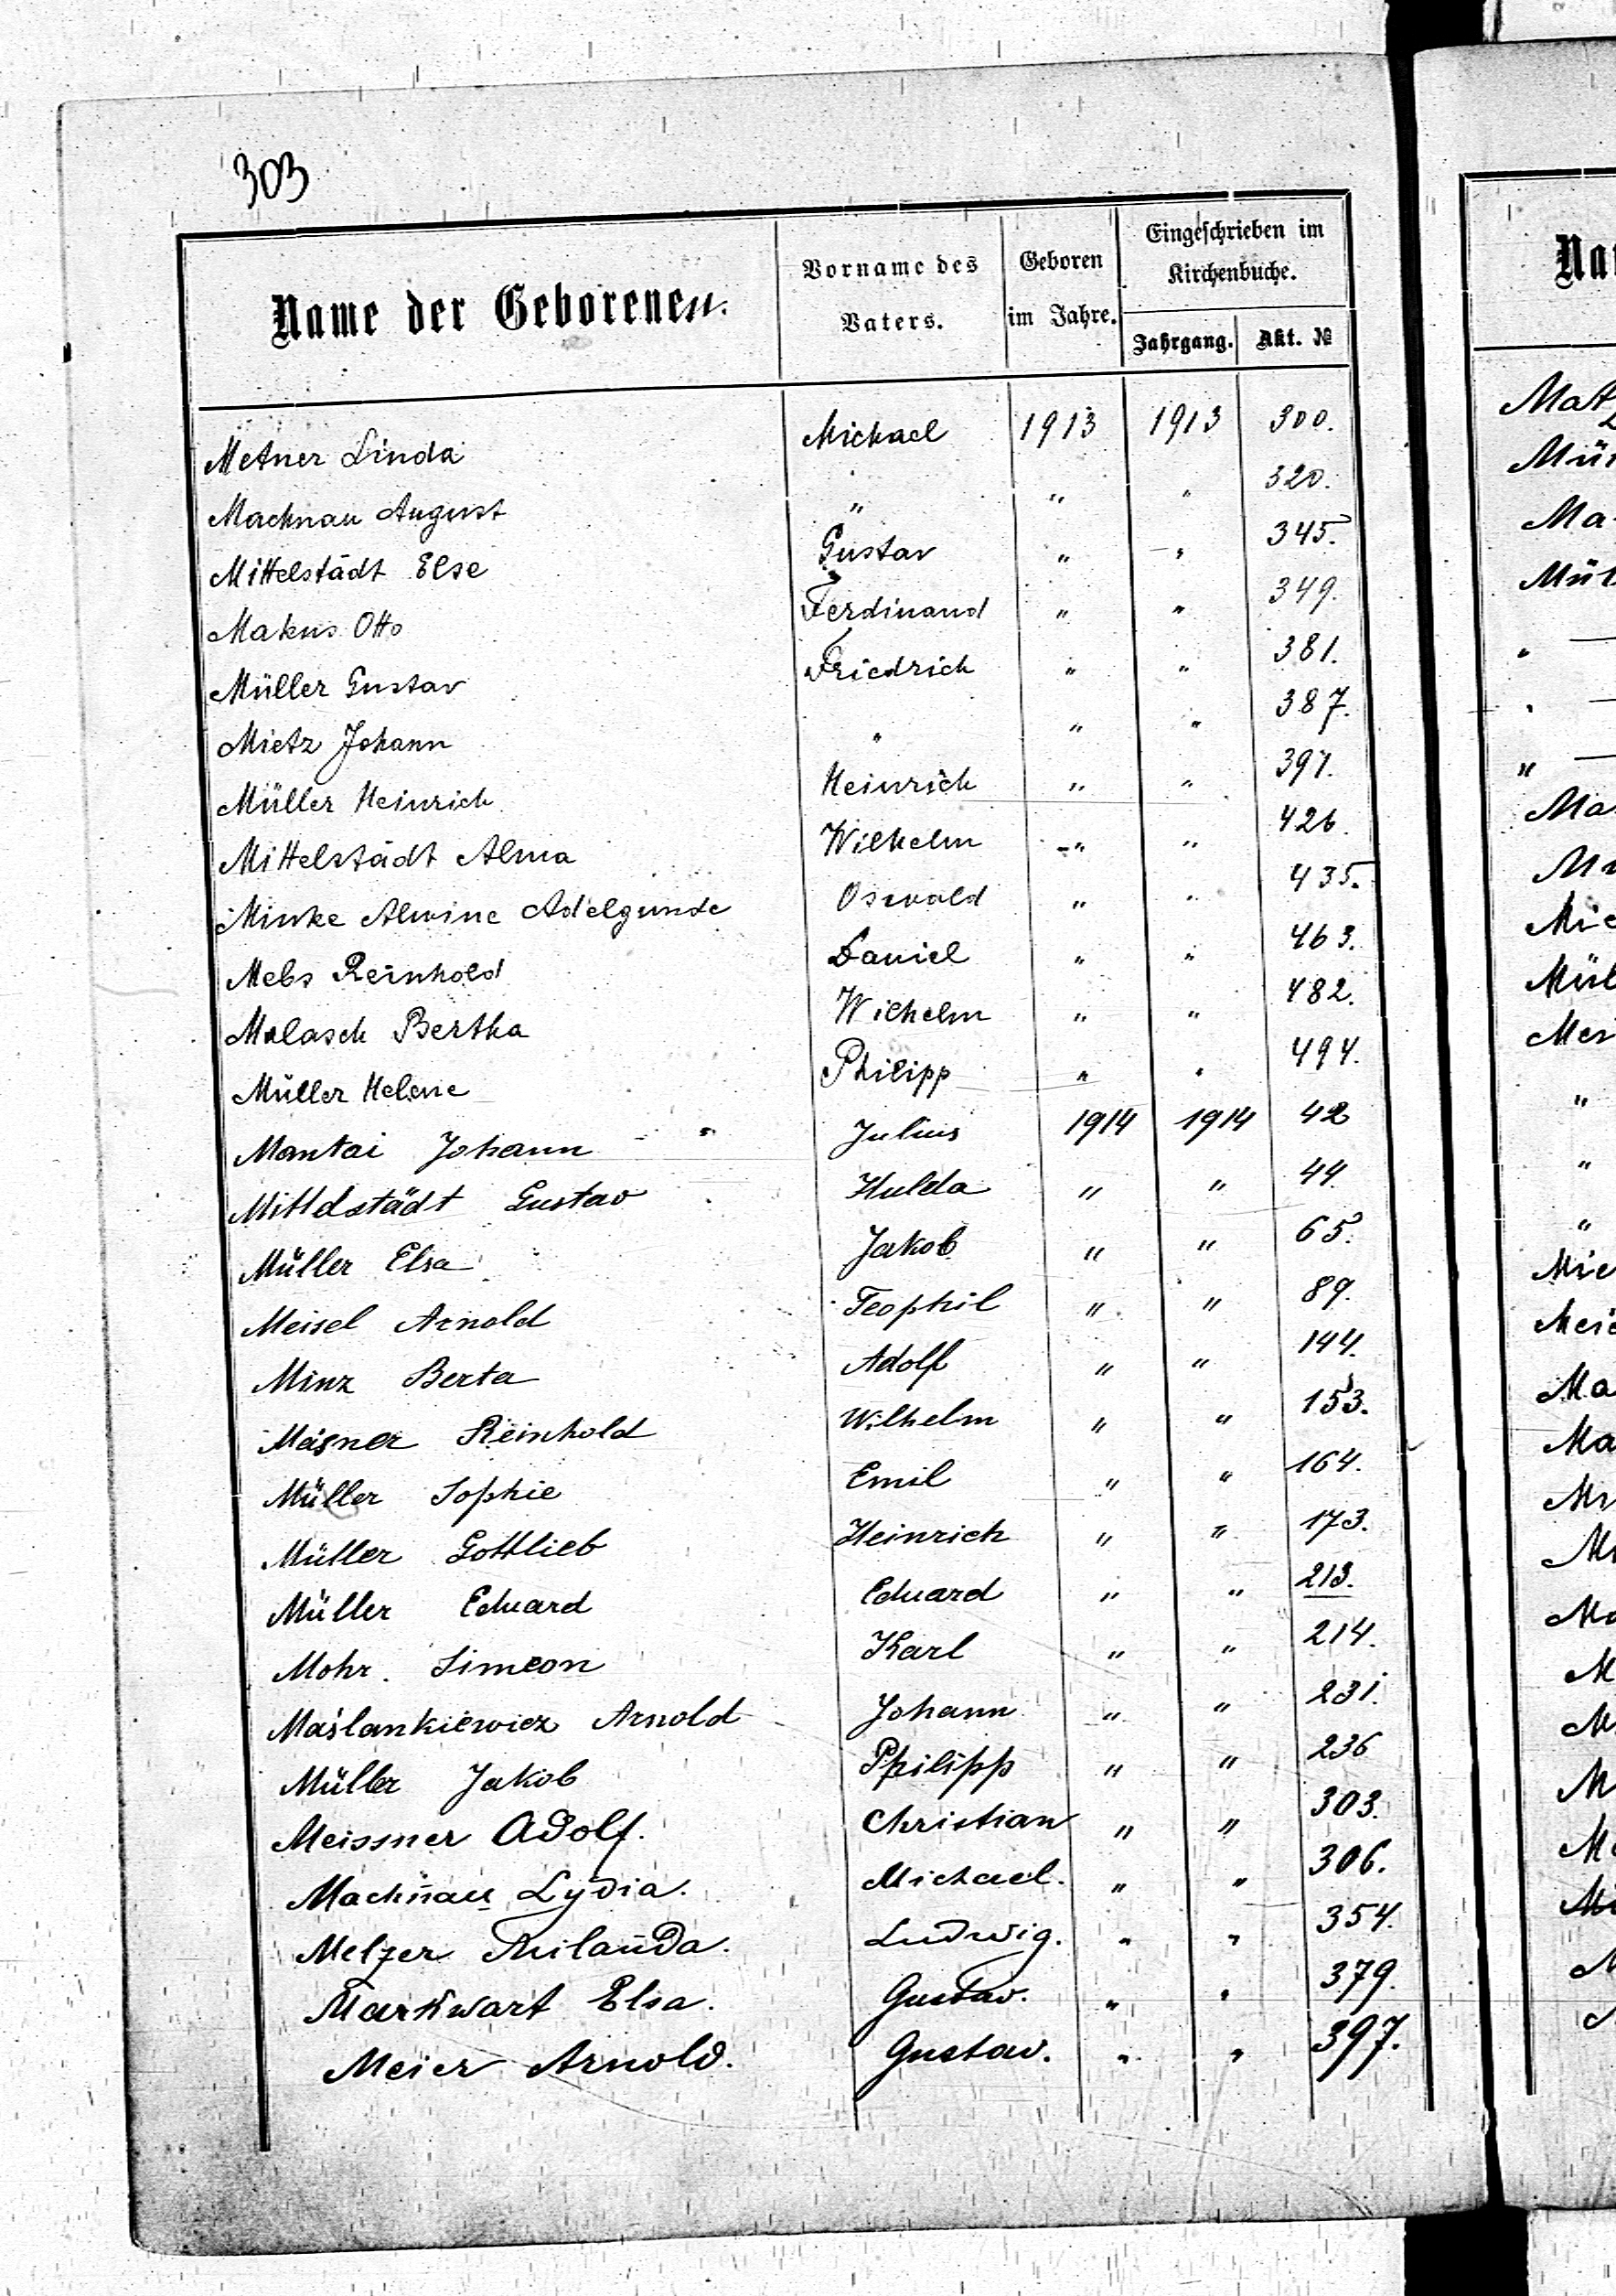 303
Name der Geborenen.
Vorname des Vaters.
Geboren im Jahre.
Eingeschrieben im Kirchenbuche.
Jahrgang. Akt. №
Metner Linda Michael 1913 1913 300.
Machnau August " " " 320.
Mittelstädt Else Gustav " " 345.
Makus Otto Ferdinand " " 349.
Müller Gustav Friedrich " " 381.
Mietz Johann " " " 387.
Müller Heinrich Heinrich " " 397.
Mittelstädt Alma Wilhelm " " 426.
Minke Alwine Adelgunde Oswald " " 435.
Mebs Reinhold Daniel " " 463.
Malasch Bertha Wilhelm " " 482.
Müller Helene Philipp " " 494.
Mantai Johann Julius 1914 1914 42
Mittelstädt Gustav Hulda " " 44.
Müller Elsa Jakob " " 65.
Meisel Arnold Teophil " " 89.
Minz Berta Adolf " " 144.
Mäsner Reinhold Wilhelm " " 153.
Müller Sophie Emil " " 164.
Müller Gottlieb Heinrich " " 173.
Müller Eduard Eduard " " 213.
Mohr Simeon Karl " " 214.
Maślankiewicz Arnold Johann " " 231.
Müller Jakob Philipp " " 236
Meissner Adolf. Christian " " 303.
Machnau Lydia. Michael. " " 306.
Melzer Ludwig. " " 354.
Markwart Elsa. Gustav. " " 379.
Meier Arnold. Gustav. " " 397.